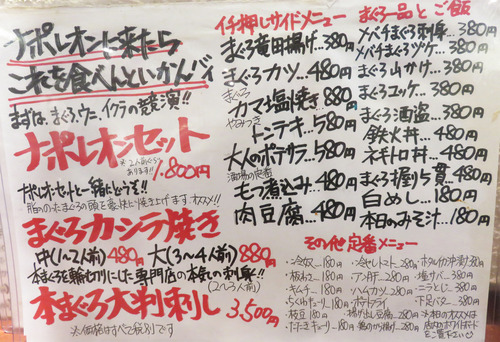 ナポレオンに来たら
これを食べんといかんバイ
まずは、まぐろ、ウニ、イクラの競演!!
ナポレオンセット
※2人前ぐらいあります!!
1.800円
ナポレオンセットと一緒にどうぞ!!
脂ののったまぐろの頭を豪快に焼き上げます。オススメ!!
まぐろカシラ焼き
中(1~2人前)480円 大(3~4人前)880円
本まぐろを輪切りにした専門店の本気の刺身!!
(2~3人前)
本まぐろ大判刺し 3.500円
※価格はすべて税別です
イチ押しサイドメニュー
まぐろ竜田揚げ…380円
まぐろカツ…480円
まぐろ
カマ塩焼き 880円
やみつき
トンテキ…580円
大人のポテサラ
酒場の定番 580円
もつ煮込み…480円
肉豆腐…480円
まぐろ一品とご飯
メバチまぐろ刺身…380円
メバチまぐろヅケ…380円
まぐろ山かけ…380円
まぐろユッケ…380円
まぐろ酒盗…380円
鉄火丼…480円
ネギトロ丼…480円
まぐろ握り5貫…480円
白めし…180円
本日のみそ汁…180円
その他定番メニュー
・冷奴…180円
・板わさ…280円
・キムチ…180円
・枝豆…180円
・たたきキューリ…180円
・冷やしトマト…280円
・アン肝…580円
・ハムカツ…280円
・ポテトフライ
・揚げ出し豆腐…280円
・鶏のから揚げ…380円
・ホタルイカ沖漬け380円
・塩サバ…380円
・ニラとじ…380円
・下足バター…380円
※本日のオススメは
店内のホワイトボード
をご覧下さい